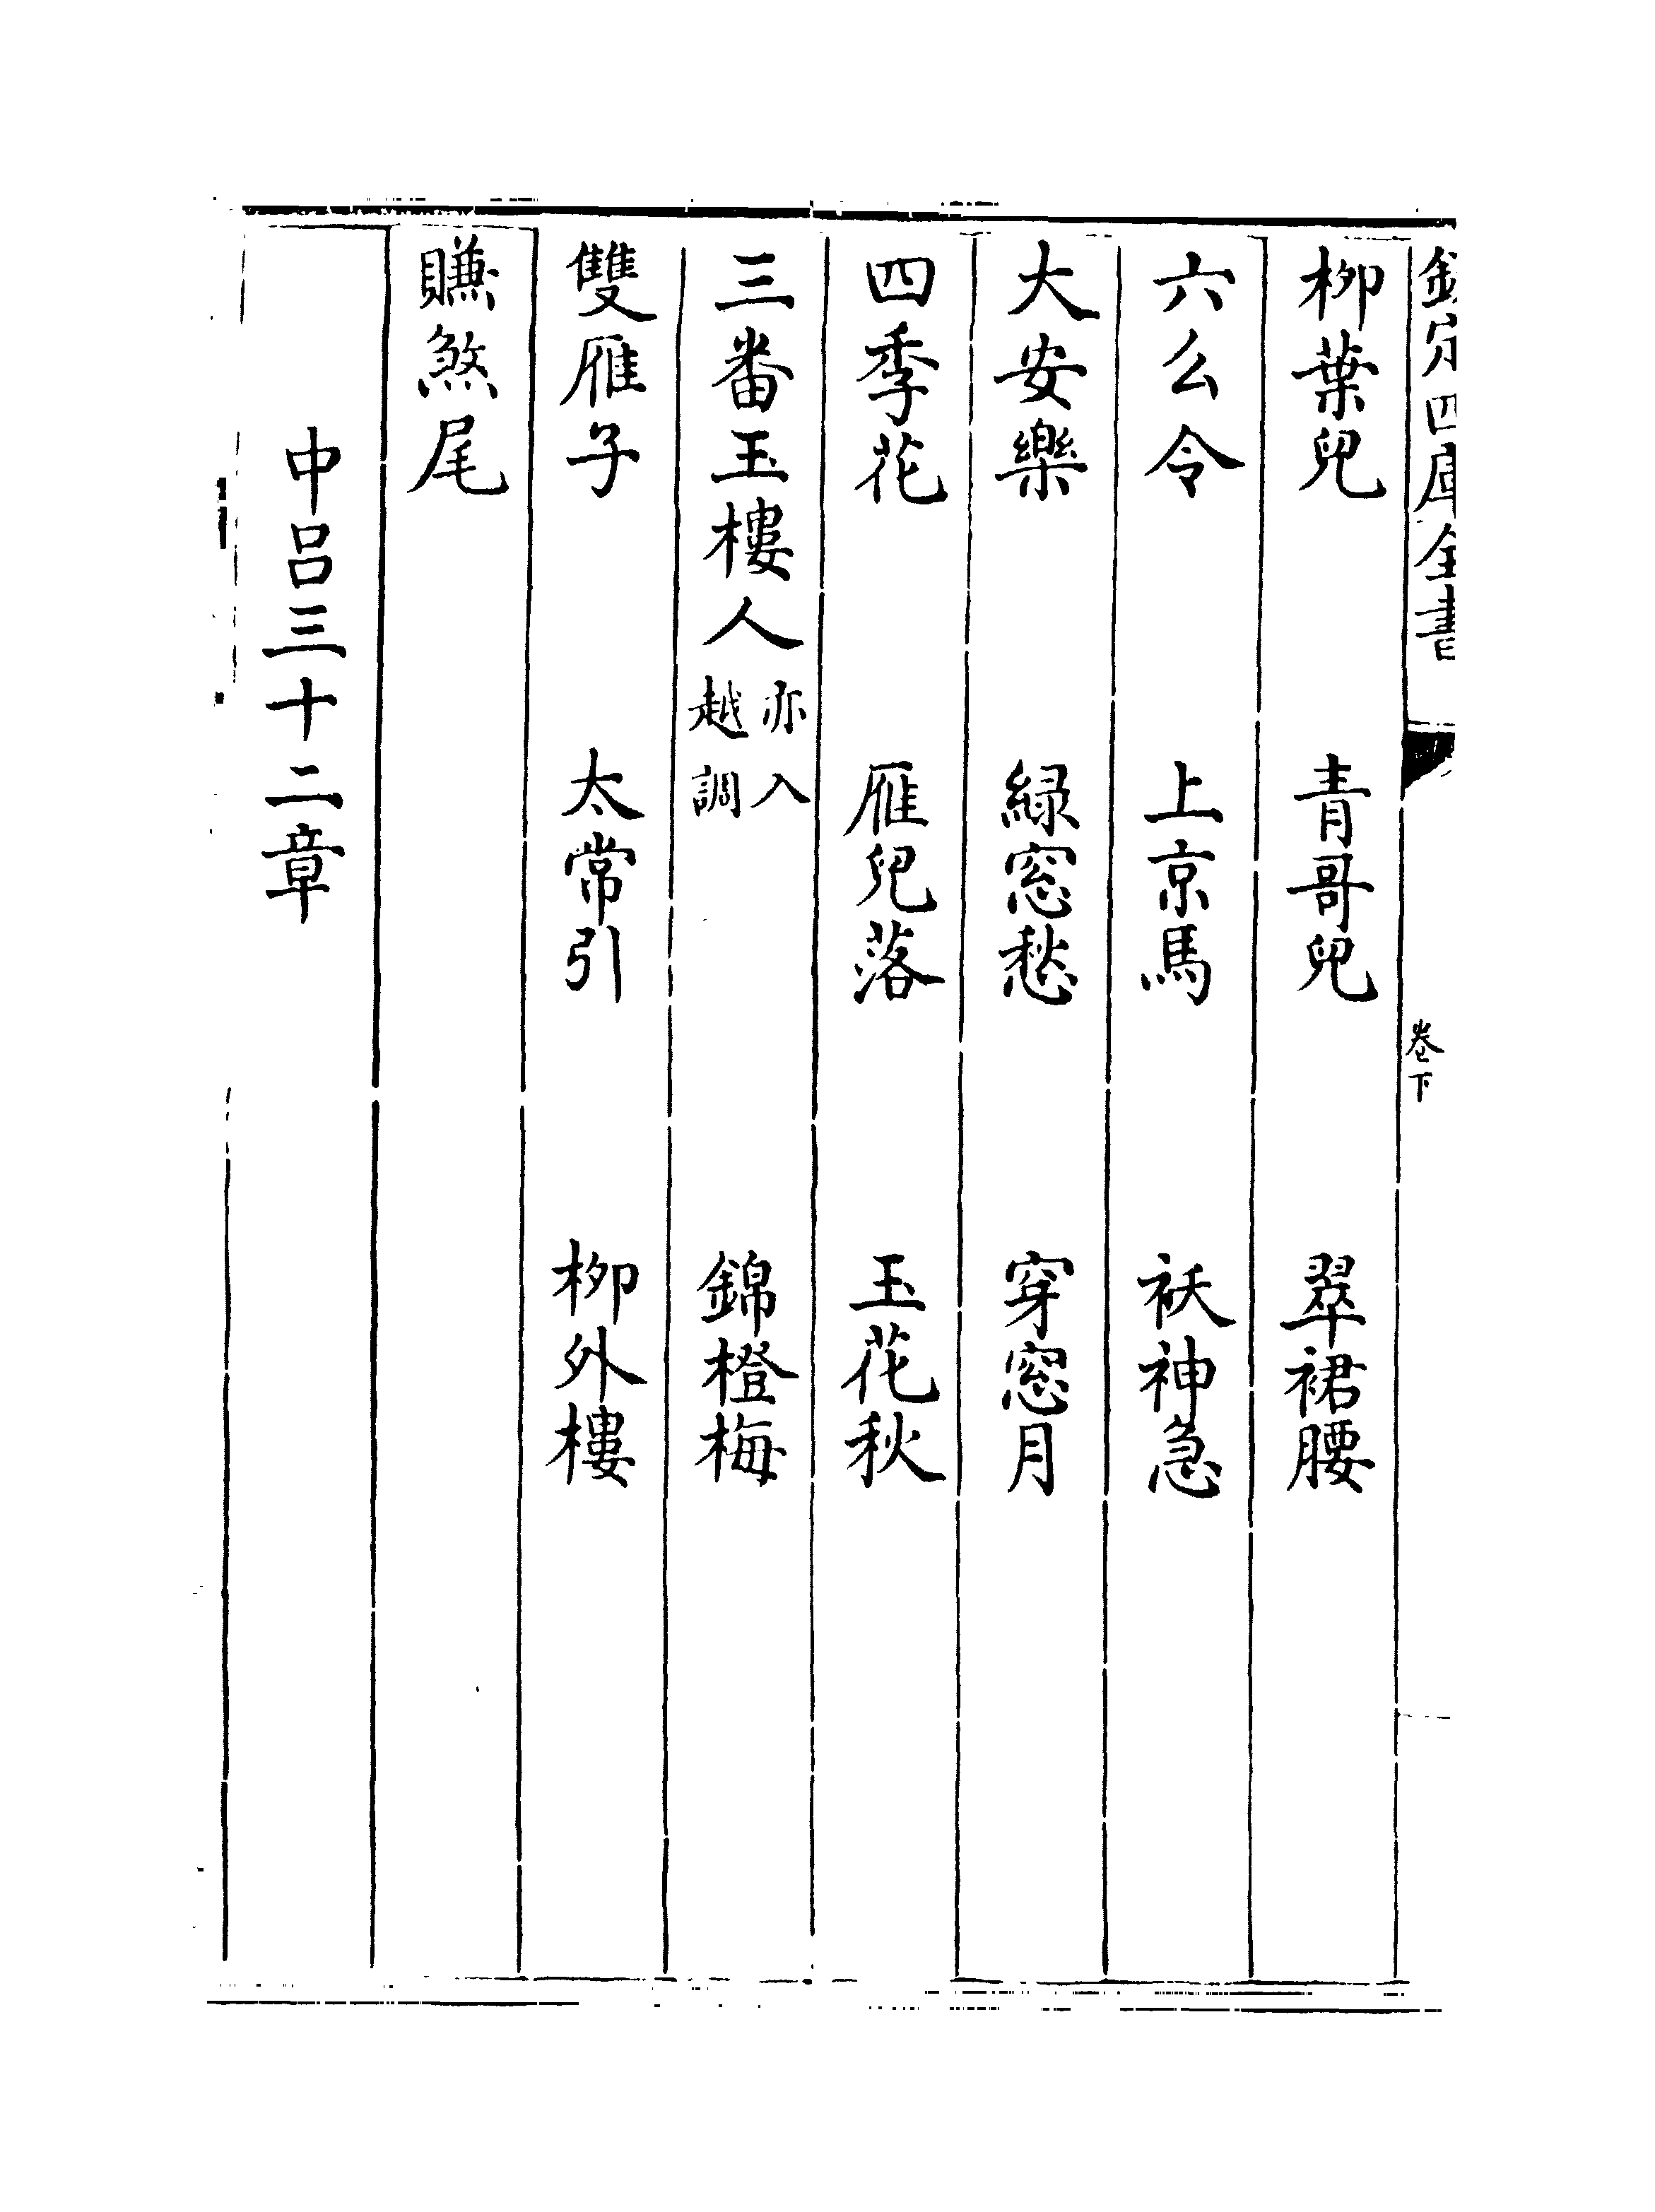 欽定四庫全書
卷下
柳葉兒 青哥兒 翠裙腰
六么令 上京馬 袄神急
大安樂 緑窓愁 穿窓月
四季花 雁兒落 玉花秋
三番玉樓人 亦入越調 錦橙梅
雙雁子 太常引 柳外樓
賺煞尾
中呂三十二章